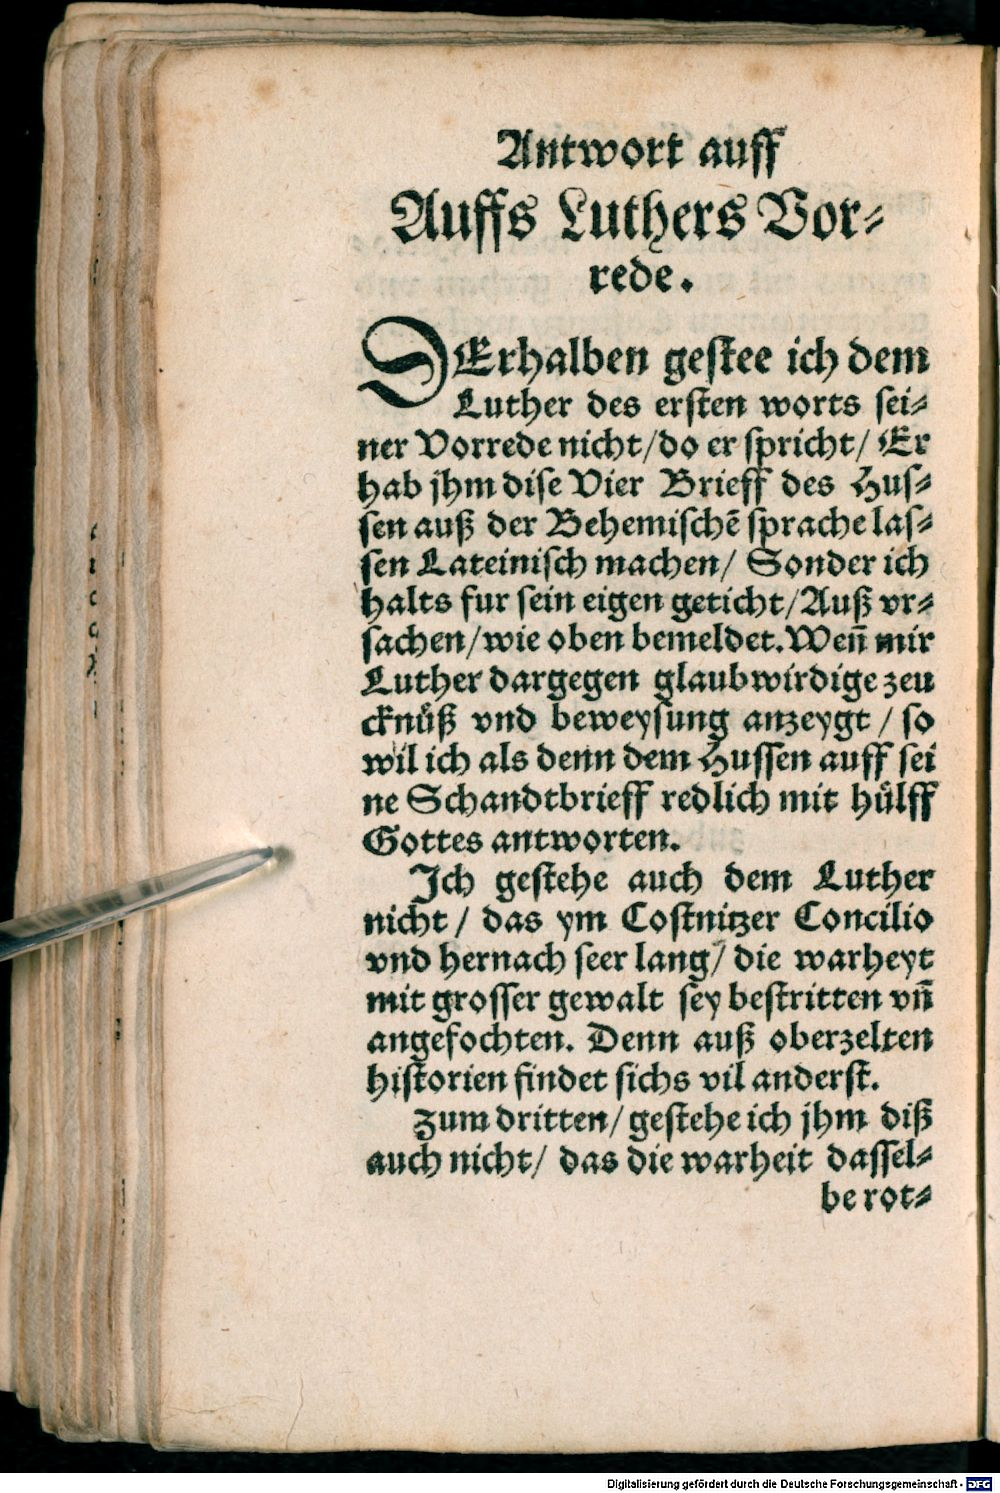 Antwort auff
Auffs Luthers Vor⸗
rede.
DErhalben gestee ich dem
Luther des ersten worts sei⸗
ner Vorrede nicht/do er spricht/ Er
hab jhm dise Vier Brieff des Hus⸗
sen auß der Behemischē sprache las⸗
sen Lateinisch machen/ Sonder ich
halts fur sein eigen geticht/Auß vr⸗
sachen/wie oben bemeldet. Weñ mir
Luther dargegen glaubwirdige zeu
cknüß vnd beweysung anzeygt / so
wil ich als denn dem Hussen auff sei
ne Schandtbrieff redlich mit hülff
Gottes antworten.
Ich gestehe auch dem Luther
nicht / das ym Costnitzer Concilio
vnd hernach seer lang/ die warheyt
mit grosser gewalt sey bestritten vñ
angefochten. Denn auß oberzelten
historien findet sichs vil anderst.
Zum dritten/ gestehe ich jhm diß
auch nicht/ das die warheit dassel⸗
be rot⸗
Digitalisierung gefördert durch die Deutsche Forschungsgemeinschaft - DFG